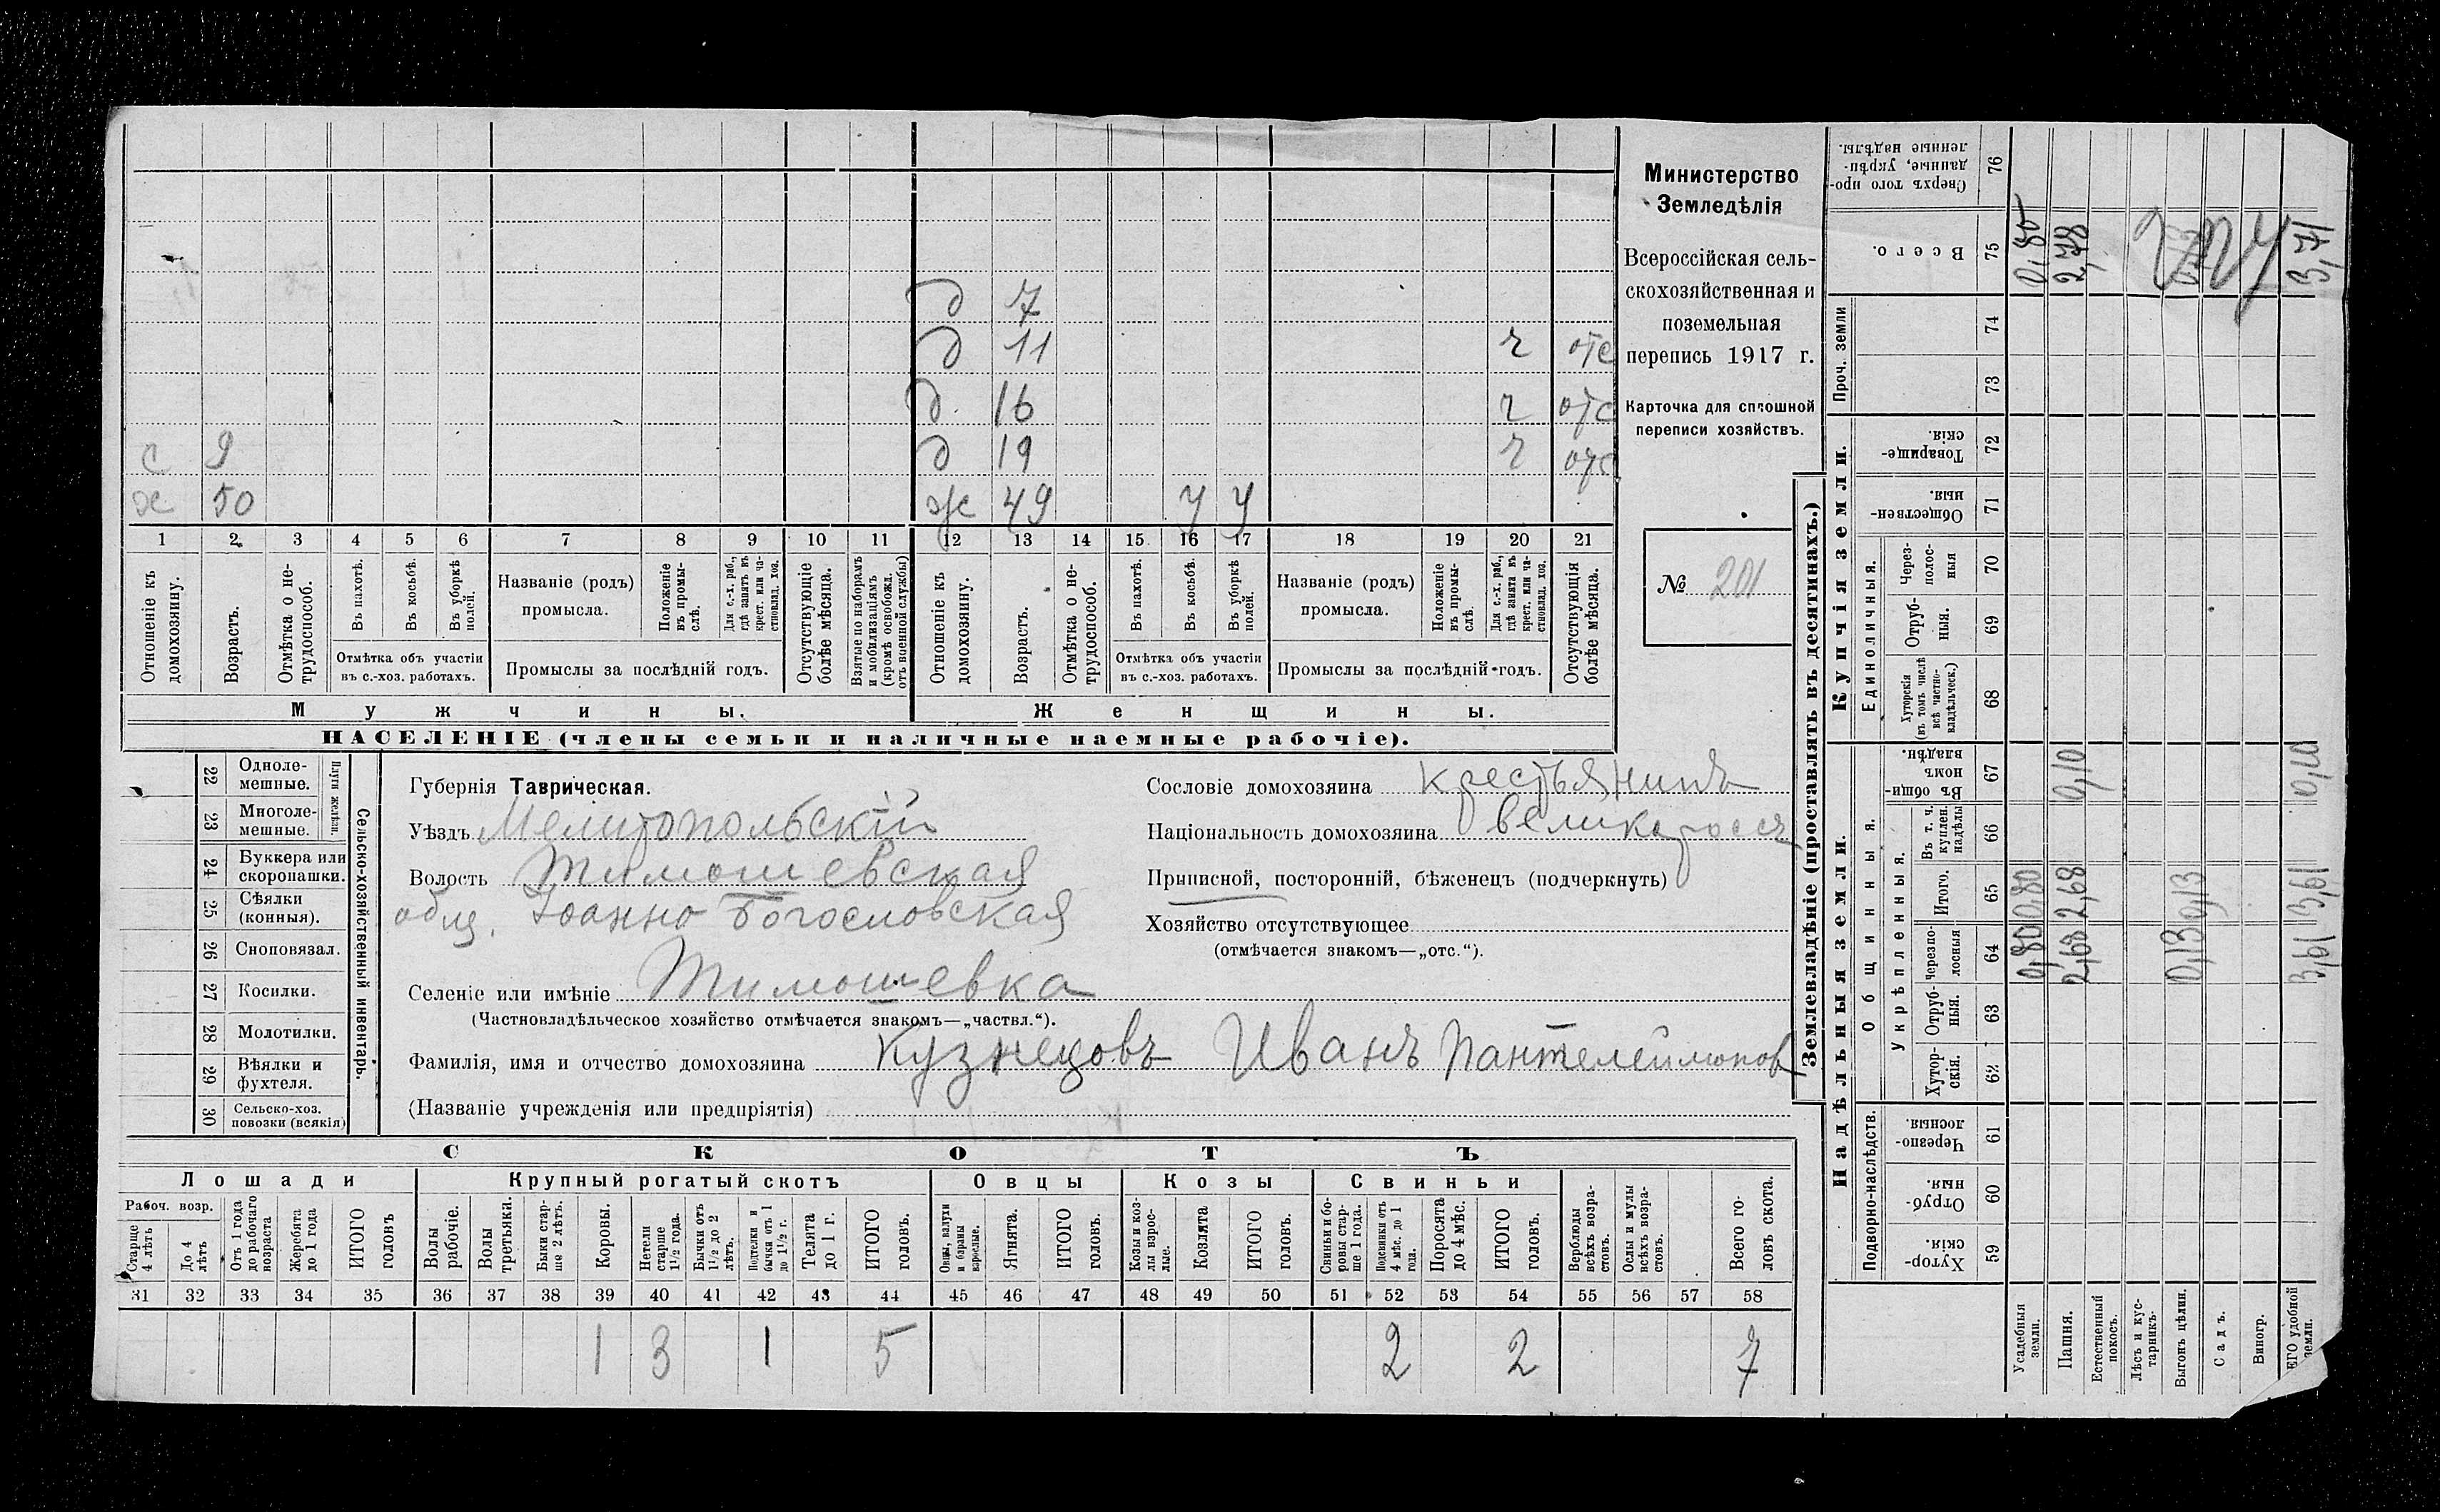 Министерство
Земледѣлія
Всероссійская сель-
скохозяйственная и
поземельная
перепись 1917 г.
Карточка для сплошной
переписи хозяйствъ.
№ 201
д 7
д 11 ч отс
д. 16 ч отс
с 9 д 19 ч отс
х 50 ж 49 у у
1 2 3 4 5 6 7 8 9 10 11 12 13 14 15 16 17 18 19 20 21
Отношеніе къ домохозяину.
Возрастъ.
Отмѣтка о не-трудоспособ.
Въ пахотѣ.
Въ косьбѣ.
Въ уборкѣ полей.
Отмѣтка объ участіи
въ с.-хоз. работахъ.
Названіе (родъ)
промысла.
Положеніе въ промы-слѣ.
Для с.-х. раб., гдѣ занятъ въ крест. или ча-стновлад. хоз.
Промыслы за послѣдній годъ.
Отсутствующіе болѣе мѣсяца.
Взятые по наборамъ и мобилизаціямъ (кромѣ освобожд. отъ военной службы)
Отношеніе къ домохозяину.
Возрастъ.
Отмѣтка о не-трудоспособ.
Въ пахотѣ.
Въ косьбѣ.
Въ уборкѣ полей.
Отмѣтка объ участіи
въ с.-хоз. работахъ.
Названіе (родъ)
промысла.
Положеніе въ промы-слѣ.
Для с.-х. раб., гдѣ занята въ крест. или ча-стновлад. хоз.
Промыслы за послѣдній годъ.
Отсутствующія болѣе мѣсяца.
Мужчины. Женщины.
НАСЕЛЕНІЕ (члены семьи и наличные наемные рабочіе).
22 Одноле-мешные.
23 Многоле-мешные.
Плуги желѣзн.
24 Буккера или скоропашки.
25 Сѣялки (конныя).
26 Сноповязал.
27 Косилки.
28 Молотилки.
29 Вѣялки и фухтеля.
30 Сельско-хоз. повозки (всякія)
Сельско-хозяйственный инвентарь.
Губернія Таврическая.
Уѣздъ Мелитопольскій
Волость Тимошевская
общ. Іоанно Богословская
Селеніе или имѣніе Тимошевка
(Частновладѣльческое хозяйство отмѣчается знакомъ—„частвл.“).
Фамилія, имя и отчество домохозяина Кузнецовъ Иванъ Пантелеимонов
(Названіе учрежденія или предпріятія)
Сословіе домохозяина крестьянинъ
Національность домохозяина великороссъ
Приписной, посторонній, бѣженецъ (подчеркнуть)
Хозяйство отсутствующее
(отмѣчается знакомъ—„отс.“).
СКОТЪ
Лошади Крупный рогатый скотъ Овцы Козы Свиньи
Рабоч. возр.
Старше 4 лѣтъ
До 4 лѣтъ
Отъ 1 года до рабочаго возраста
Жеребята до 1 года
ИТОГО головъ
Волы рабочіе.
Волы третьяки.
Быки стар-ше 2 лѣтъ.
Коровы.
Нетели старше 1½ года.
Бычки отъ 1½ до 2 лѣтъ.
Подтелки и бычки отъ 1 до 1½ г.
Телята до 1 г.
ИТОГО головъ.
Овцы, валухи и бараны взрослые.
Ягнята.
ИТОГО головъ.
Козы и коз-лы взрос-лые.
Козлята
ИТОГО головъ.
Свиньи и бо-ровы стар-ше 1 года.
Подсвинки отъ 4 мѣс. до 1 года.
Поросята до 4 мѣс.
ИТОГО головъ.
Верблюды всѣхъ возра-стовъ.
Ослы и мулы всѣхъ возра-стовъ.
Всего го-ловъ скота.
31 32 33 34 35 36 37 38 39 40 41 42 43 44 45 46 47 48 49 50 51 52 53 54 55 56 57 58
1 3 1 5 2 2 7
Землевладѣніе (проставлять въ десятинахъ.)
Надѣльныя земли. Купчія земли. Проч. земли
Подворно-наслѣдств. Общинныя. Единоличныя.
Укрѣпленныя.
59 Хутор-скія.
60 Отруб-ныя.
61 Черезпо-лосныя.
62 Хутор-скія.
63 Отруб-ныя.
64 Черезпо-лосныя
65 Итого.
66 Въ т. ч. куплен. надѣлы
67 Въ общи-номъ владѣн.
68 Хуторскія (въ томъ числѣ всѣ частно-владѣльческ.)
69 Отруб-ныя.
70 Через-полос-ныя
71 Обществен-ныя.
72 Товарище-скія.
73
74
75 Всего.
76 Сверхъ того про-данные, укрѣп-ленные надѣлы.
Усадебныя земли. 0,80 0,80 0,80
Пашня. 2,68 2,68 0,10 2,78
Естественный покосъ.
Лѣсъ и кус-тарникъ.
Выгонъ цѣлин. 0,13 0,13
Садъ.
Виногр.
ЕГО удобной земли. 3,61 3,61 0,10 3,71